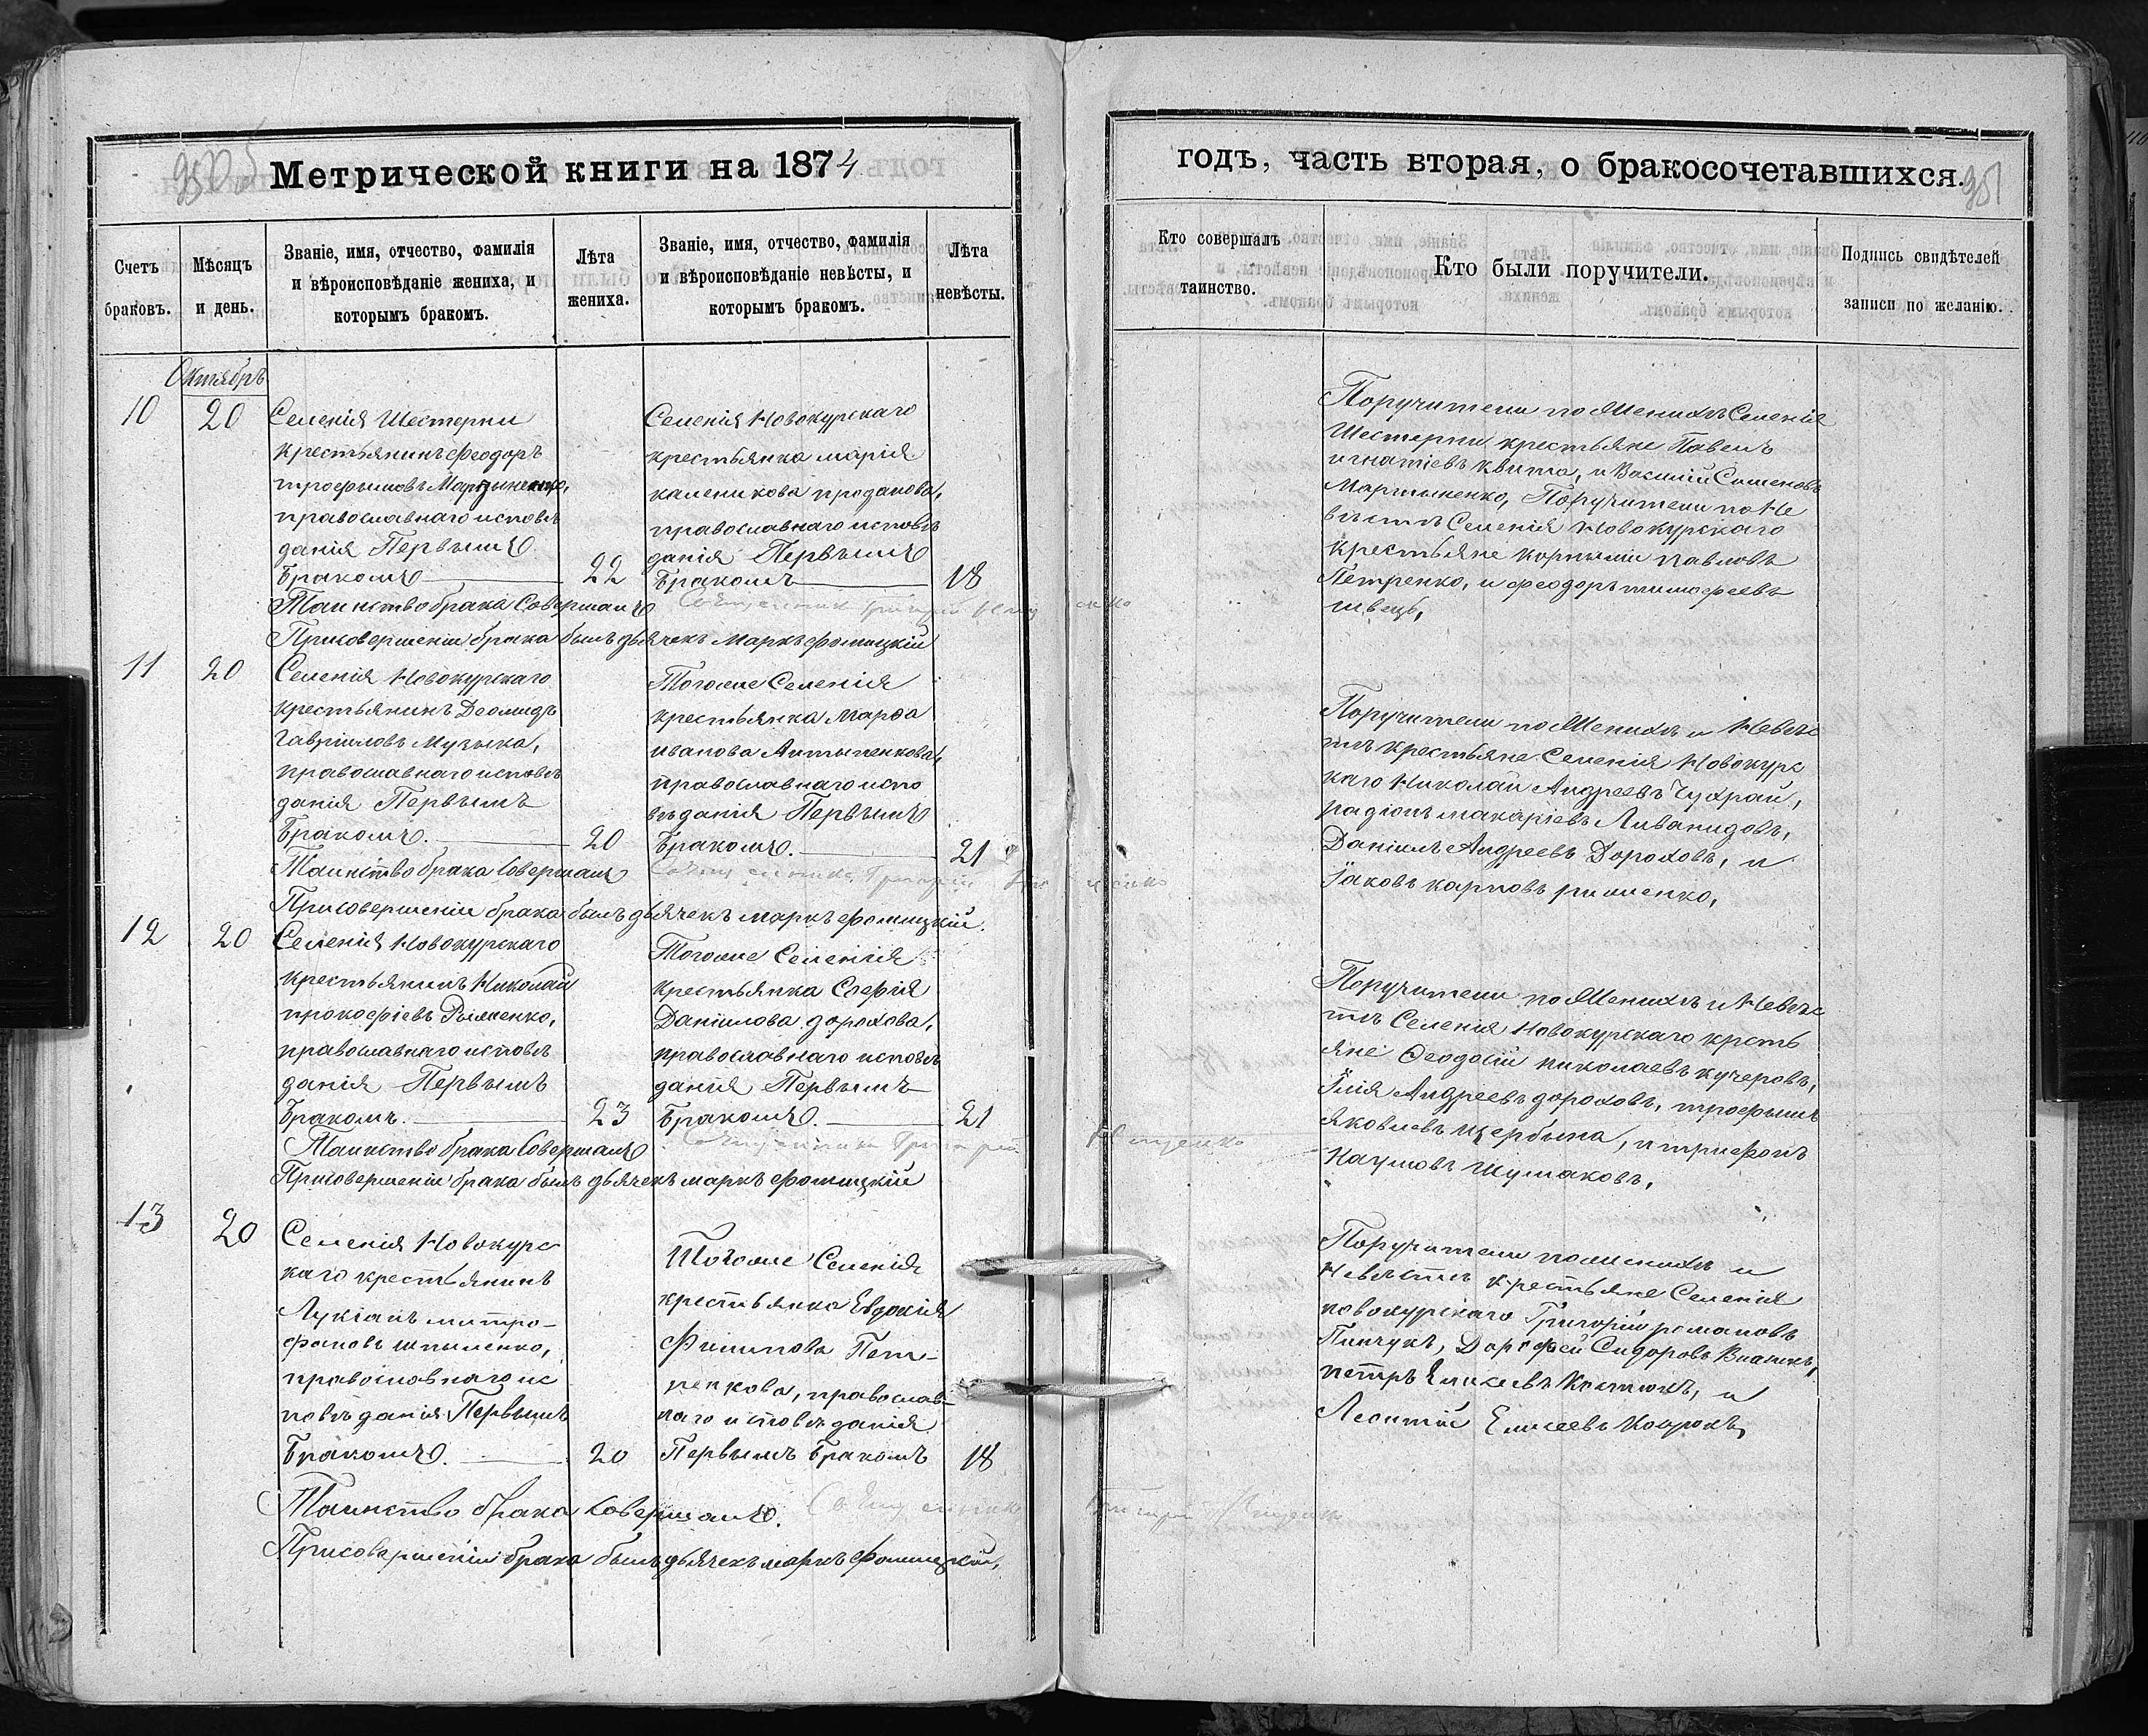 Метрической книги на 1874
годъ, часть вторая, о бракосочетавшихся.
951
Счетъ браковъ.
Мѣсяцъ и день.
Званіе, имя, отчество, фамилія
и вѣроисповѣданіе жениха, и
которымъ бракомъ.
Лѣта
жениха.
Званіе, имя, отчество, фамилія
и вѣроисповѣданіе невѣсты, и
которымъ бракомъ.
Лѣта
невѣсты.
Кто совершалъ
таинство.
Кто были поручители.
Подпись свидѣтелей
записи по желанію.
Октябрь
10
20
Селенія Шестерни
крестьянинъ Феодоръ
трофимовъ Мартыненко,
православнаго исповѣ
данія Первымъ
Бракомъ
22
Селенія Новокурскаго
крестьянка марія
каленикова проданова,
православнаго исповѣ
данія Первымъ
Бракомъ
18
Таинство брака Совершалъ Священникъ Григорій
Присовершеніи брака былъ дьячекъ Маркъ Фомицкій
Поручители по Женихѣ Селенія
Шестерни крестьяне Павелъ
игнатіевъ квита, и Василій Семеновъ
Мартыненко, Поручители по Не
вѣстѣ Селенія Новокурскаго
крестьяне корнилій павловъ
Петренко, и феодоръ тимофеевъ
швецъ,
11
20
Селенія Новокурскаго
крестьянинъ Деомидъ
Гавриловъ Музыка,
православнаго исповѣ
данія Первымъ
Бракомъ.
20
Тогоже Селенія
крестьянка марѳа
иванова Антыпенкова,
православнаго испо
вѣданія Первымъ
Бракомъ.
21
Таинство брака Совершалъ Священникъ Григорій
Присовершеніи брака былъ дьячекъ маркъ Фомицкій.
Поручители по Женихѣ и Невѣс
тѣ крестьяне Селенія Новокурс
каго Николай Андреевъ Чухрай,
радіонъ макаріевъ Ливанидовъ,
Даніилъ Андреевъ Дороховъ, и
Іаковъ карповъ
12
20
Селенія Новокурскаго
крестьянинъ Николай
прокофіевъ
православнаго исповѣ
данія Первымъ
Бракомъ.
23
Тогоже Селенія
крестьянка Софія
Даніилова дорохова,
православнаго исповѣ
данія Первымъ
Бракомъ.
21
Таинство брака Совершалъ Священникъ Григорій
Присовершеніи брака былъ дьячекъ маркъ фомицкій
Поручители по Женихѣ и Невѣс
тѣ Селенія Новокурскаго кресть
яне Ѳеодосій николаевъ кучеровъ,
Илія Андреевъ дороховъ, трофымъ
яковлевъ щербына, и трифонъ
Наумовъ шумаковъ,
13
20
Селенія Новокурс
каго крестьянинъ
Лукіанъ митро-
фановъ шпыленко,
православнаго ис
повѣданія Первымъ
Бракомъ.
20
Тогоже Селенія
крестьянка Евдокія
Филипова Пет-
ренкова, православ-
наго исповѣданія
Первымъ Бракомъ
18
Таинство брака Совершалъ. Священникъ
Присовершеніи брака былъ дьячекъ маркъ фомицкій,
Поручители по женихѣ и
Невѣстѣ крестьяне Селенія
новокурскаго Григорій романовъ
Пинчукъ, Дорофей Сидоровъ
петръ
Леонтій Елисеевъ